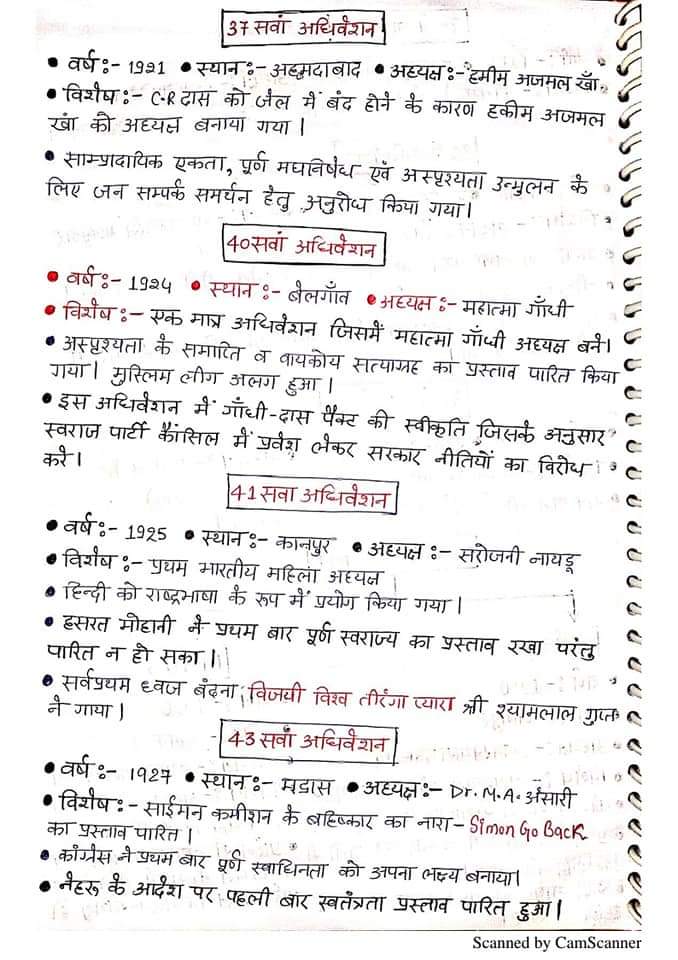 37 सवां अधिवेशन
• वर्ष :- 1921 • स्थान :- अहमदाबाद • अध्यक्ष :- हमीम अजमल खाँ
• विशेष :- C.R दास को जेल में बंद होने के कारण हकीम अजमल
खां को अध्यक्ष बनाया गया।
• साम्प्रादायिक एकता, पूर्ण मघविषेध एवं अस्पृश्यता उन्मुलन के
लिए जन सम्पर्क समर्थन हेतु अनुरोध किया गया।
40 सवां अधिवेशन
• वर्ष :- 1924 • स्थान :- बेलगाँव • अध्यक्ष :- महात्मा गाँधी
• विशेष :- एक मात्र अधिवेशन जिसमें महात्मा गाँधी अध्यक्ष बने।
• अस्पृश्यता के समाप्ति व वायकोय सत्याग्रह का प्रस्ताव पारित किया
गया। मुस्लिम लीग अलग हुआ।
• इस अधिवेशन में गाँधी-दास पैक्ट की स्वीकृति जिसके अनुसार
स्वराज पार्टी कौंसिल में प्रवेश लेकर सरकार नीतियों का विरोध
करे।
41 सवा अधिवेशन
• वर्ष :- 1925 • स्थान :- कानपुर • अध्यक्ष :- सरोजनी नायडू
• विशेष :- प्रथम भारतीय महिला अध्यक्ष
• हिन्दी को राष्ट्रभाषा के रूप में प्रयोग किया गया।
• हसरत मोहानी ने प्रथम बार पूर्ण स्वराज्य का प्रस्ताव रखा परंतु
पारित न हो सका।
• सर्वप्रथम ध्वज बंदना विजयी विश्व तीरंगा प्यारा श्री श्यामलाल गुप्त
ने गाया।
43 सवां अधिवेशन
• वर्ष :- 1927 • स्थान :- मद्रास • अध्यक्ष :- Dr. M.A. अंसारी
• विशेष :- साईमन कमीशन के बहिष्कार का नारा - Simon Go Back
का प्रस्ताव पारित।
• कांग्रेस ने प्रथम बार पूर्ण स्वाधिनता को अपना लक्ष्य बनाया।
• नेहरू के आदेश पर पहली बार स्वतंत्रता प्रस्ताव पारित हुआ।
Scanned by CamScanner